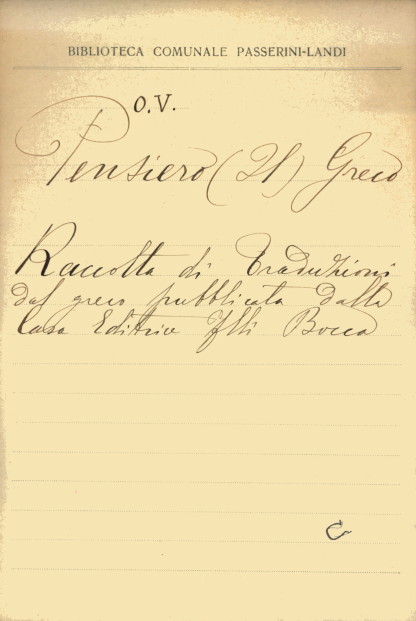 BIBLIOTECA COMUNALE PASSERINI-LANDI
O.V.
Pensiero (Il) Greco
Raccolta di traduzioni
dal greco pubblicata dalla
Casa Editrice Flli Bocca
C